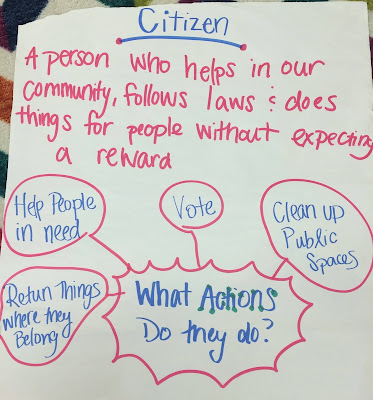 Citizen
A person who helps in our
community, follows laws & does
things for people without expecting
a reward
Help People
in need
Vote
Clean up
Public
Spaces
Retun Things
where they
Belong
What Actions
Do they do?